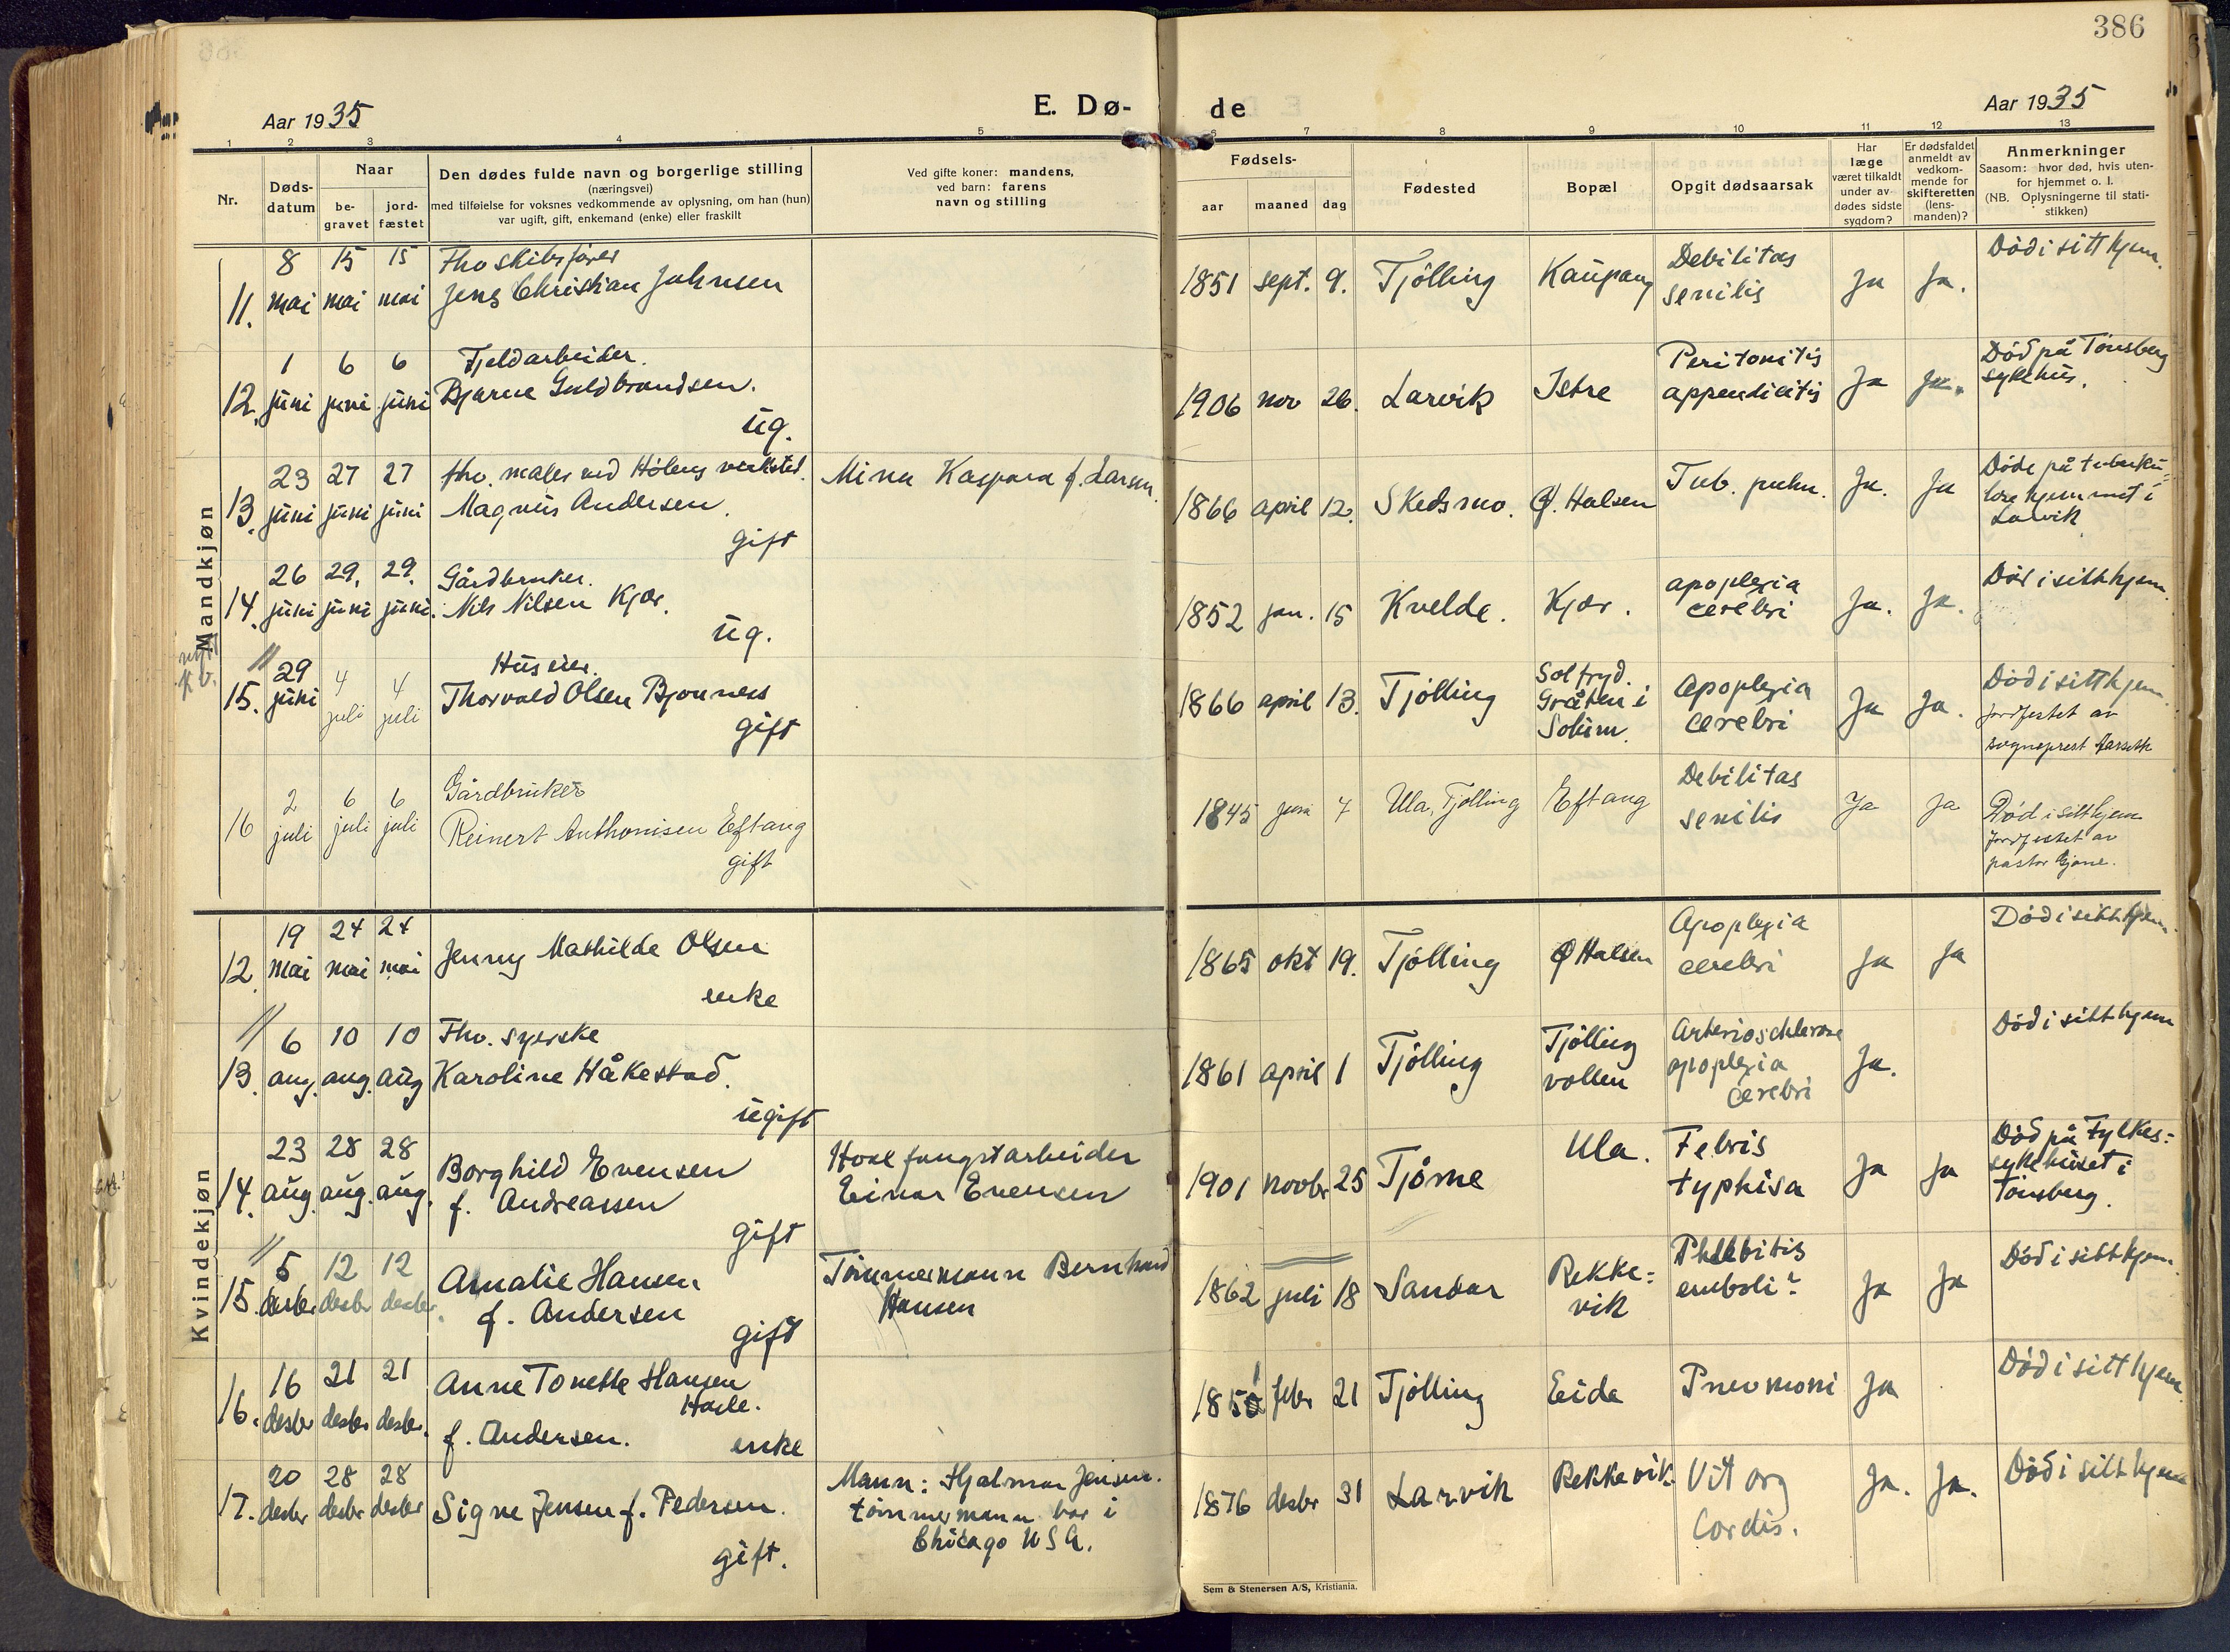 386
Aar 1935
E. Dø-
de
Aar 1935
1 2 3 4 5 6 7 8 9 10 11 12 13
Nr.
Døds-
datum
Naar
be-
gravet
jord-
fæstet
Den dødes fulde navn og borgerlige stilling
(næringsvei)
med tilføielse for voksnes vedkommende av oplysning, om han (hun)
var ugift, gift, enkemand (enke) eller fraskilt
Ved gifte koner: mandens,
ved barn: farens
navn og stilling
Fødsels-
aar maaned dag
Fødested
Bopæl
Opgit dødsaarsak
Har
læge
været tilkaldt
under av-
dødes sidste
sygdom?
Er dødsfaldet
anmeldt av
vedkom-
mende for
skifteretten
(lens-
manden)?
Anmerkninger
Saasom: hvor død, hvis uten-
for hjemmet o. l.
(NB. Oplysningerne til stati-
stikken)
Mandkjøn
8 15 15 Fhv skibsfører
11. mai mai mai Jens Christian Johnsen
1851 sept. 9. Tjølling Kaupang
Debilitas
senilis
Ja Ja.
Död i sitt hjem.
1 6 6 Fjeldarbeider.
12. juni juni juni Bjarne Guldbrandsen.
ug.
1906 nov 26. Larvik Istre
Peritonitis
appendicitis
Ja Ja.
Död på Tönsberg
sykehus.
23 27 27 fhv. maler ved Hölens verksted.
13. juni juni juni Magnus Andersen.
gift
Mina Kaspara f. Larsen.
1866 april 12. Skedsmo. Ø. Halsen
Tub. pulm.
Ja. Ja
Döde på tuberku-
lose hjemmet i
Larvik
26 29. 29. Gårdbruker.
14. juni juni juni. Nils Nilsen Kjær.
ug.
1852 jan. 15 Kvelde. Kjær.
apoplexia
cerebri
Ja. Ja.
Död i sitt hjem.
29 4 4 Huseier.
15. juni juli juli Thorvald Olsen Bjønness
gift
1866 april 13. Tjølling
Solfryd.
Gråten i
Solum.
Apoplexia
cerebri
Ja Ja.
Död i sitt hjem.
jordfestet av
sogneprest
2 6 6 Gårdbruker
16 juli juli juli Reinert Anthonisen Eftang
gift
1845 juni 7 Ula, Tjølling Eftang
Debilitas
senilis
Ja Ja
Död i sitt hjem
jordfestet av
pastor
Kvindekjøn
19 24 24
12. mai mai mai Jenny Mathilde Olsen
enke
1865 okt 19. Tjølling Ø Halsen
Apoplexia
cerebri
Ja Ja
Död i sitt hjem.
6 10 10 Fhv. syerske
13. aug. aug. aug Karoline Håkestad.
ugift
1861 april 1 Tjølling
Tjølling
vollen
Arterioschlerose
apoplexia
cerebri
Ja.
Död i sitt hjem
23 28 28
14. aug. aug. aug. Borghild Evensen
f. Andreassen
gift
Hvalfangstarbeider
Einar Evensen
1901 novbr 25 Tjøme Ula.
Febris
typhisa
Ja Ja
Död på Fylkes-
sykehuset i
Tönsberg.
5 12 12
15. desbr desbr desbr. Amalie Hansen
f. Andersen
gift
Tömmermann Bernhard
Hansen
1862 juli 18 Sandar
Rekke-
vik
Phlebitis
emboli?
Ja Ja
Död i sitt hjem.
16 21 21 Anne Tonette Hansen
16. desbr desbr desbr.
f. Andersen.
enke
febr 21 Tjølling Eida
Pnevmoni
Ja
Död i sitt hjem
20 28 28
17. desbr desbr desbr Signe Jensen f. Pedersen.
gift.
Mann: Hjalmar Jensen.
tömmermann bor i
Chicago USA.
1876 desbr 31 Larvik Rekkevik.
Vit org
Cordis.
Ja. Ja.
Död i sitt hjem
Sem & Stenersen A/S, Kristiania.